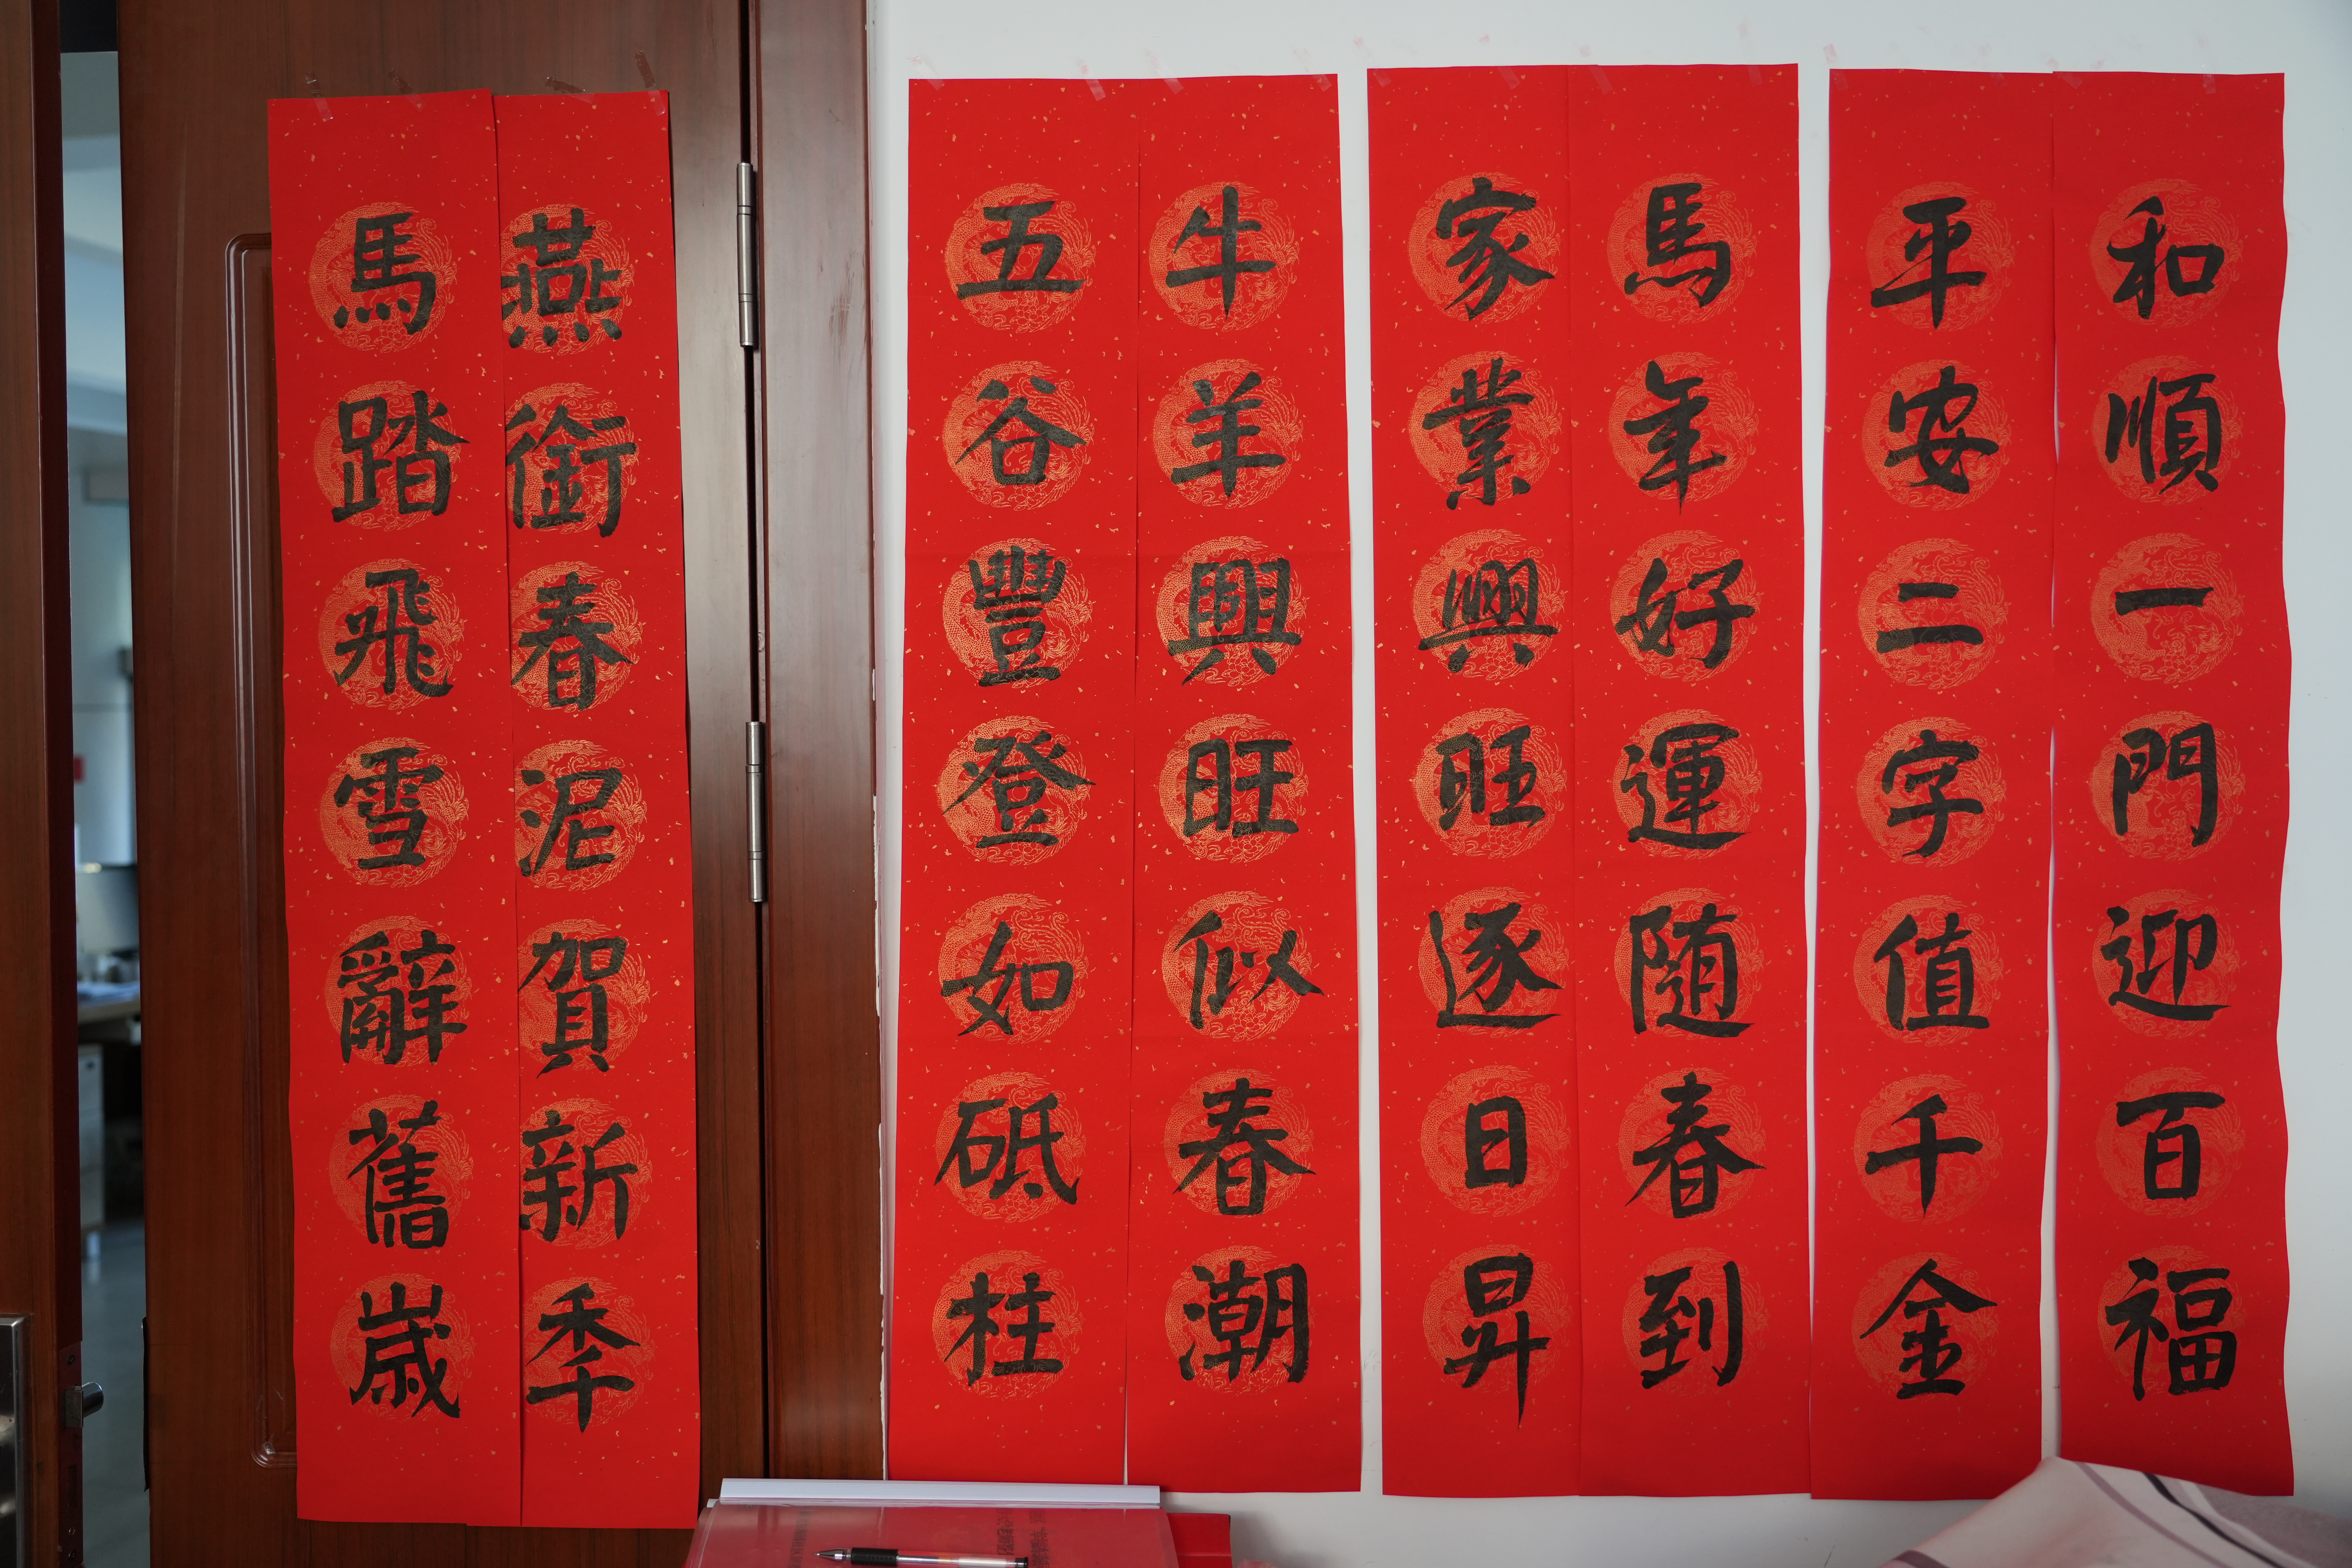 和順一門迎百福
平安二字值千金
馬年好運随春到
家業興旺逐日昇
牛羊興旺似春潮
五谷豐登如砥柱
燕銜春泥賀新季
馬踏飛雪辭舊歲